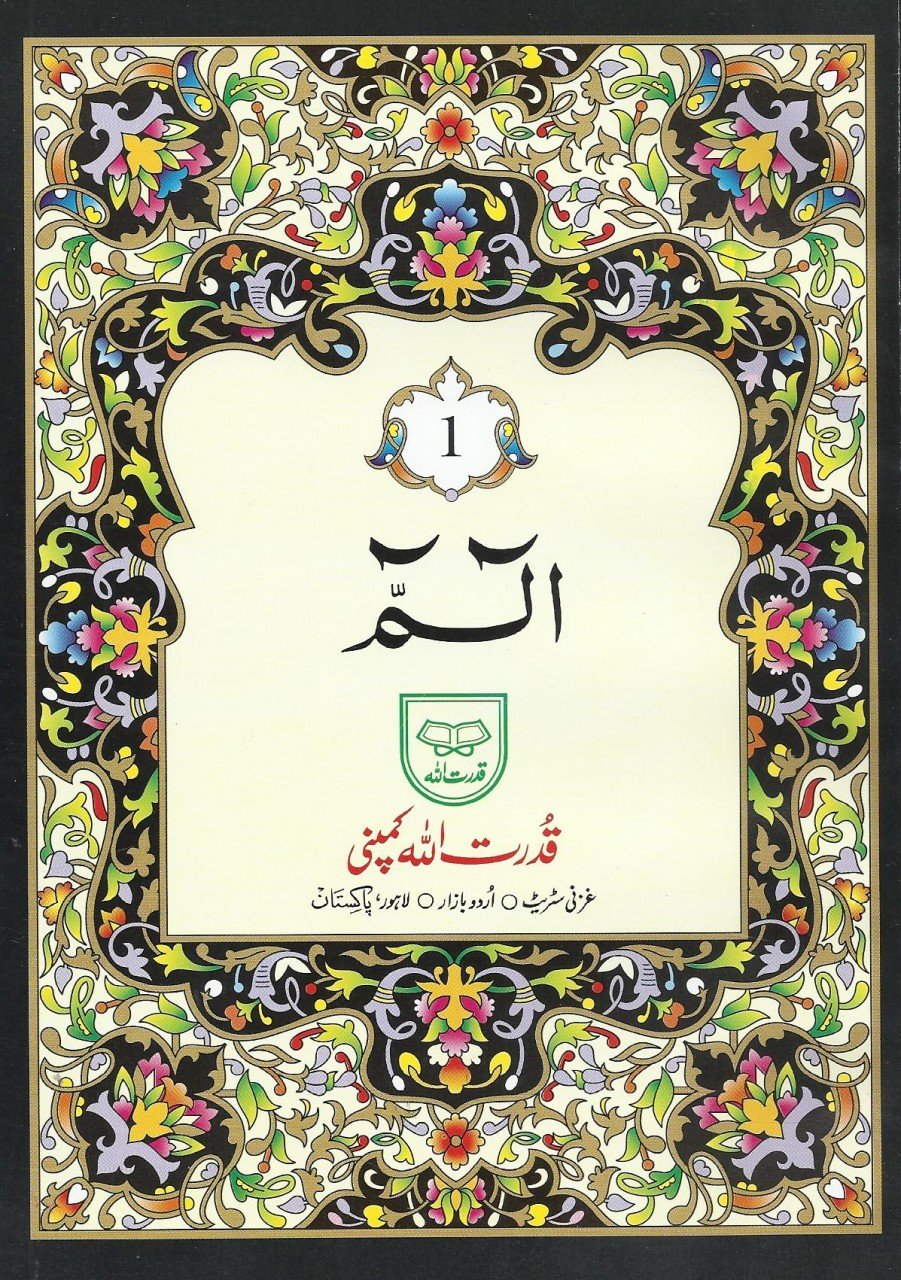 1
الٓمّٓ
قدرت اللہ
قُدرت اللہ کمپنی
غزنی سٹریٹ ○ اُردو بازار ○ لاہور، پاکستان